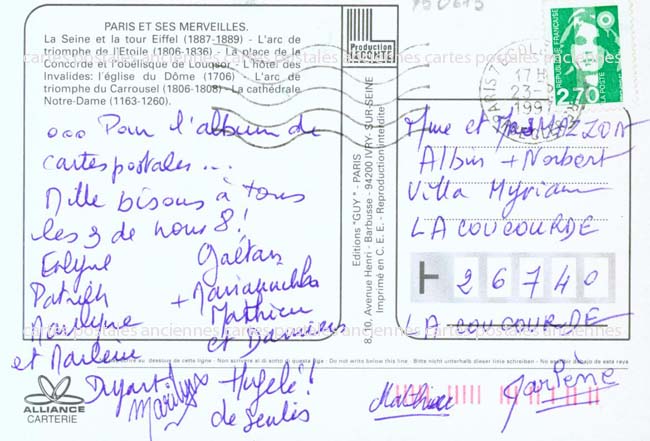 PARIS ET SES MERVEILLES.
La Seine et la tour Eiffel (1887-1889) - L'arc de
triomphe de l'Etoile (1806-1836) - La place de la
Concorde et l'obélisque de Louqsor - L'hôtel des
Invalides: l'église du Dôme (1706) - L'arc de
triomphe du Carrousel (1806-1808) - La cathédrale
Notre-Dame (1163-1260).
ooo Pour l'album de
cartes postales...
Mille bisous à tous
les 3 de nous 8!
Evelyne
Patrick
Marilyne
et Marlène
Gaëtan
+
Mathieu
et Damiens
Hugelé!
de Senlis
Marilyne
Mathieu
Marlène
Production
LECOMTE
Editions "GUY" - PARIS
8, 10, Avenue Henri - Barbusse - 94200 IVRY-SUR-SEINE
Imprimé en C. E. E. - Reproduction interdite
REPUBLIQUE FRANÇAISE
LA POSTE
2,70
PARIS 7
17H
23-
199
Mme et
Albin + Norbert
Villa Myriam
LA COUCOURDE
26740
LA COUCOURDE
au dessous de cette ligne - Non scrivere al di sotto di questa riga - Do not write below this line - Bitte nicht unterhalb dieser linie schreiben - No escribir debajo de esta raya
ALLIANCE
CARTERIE
cartes postales anciennes cartes postales anciennes cartes postales anciennes